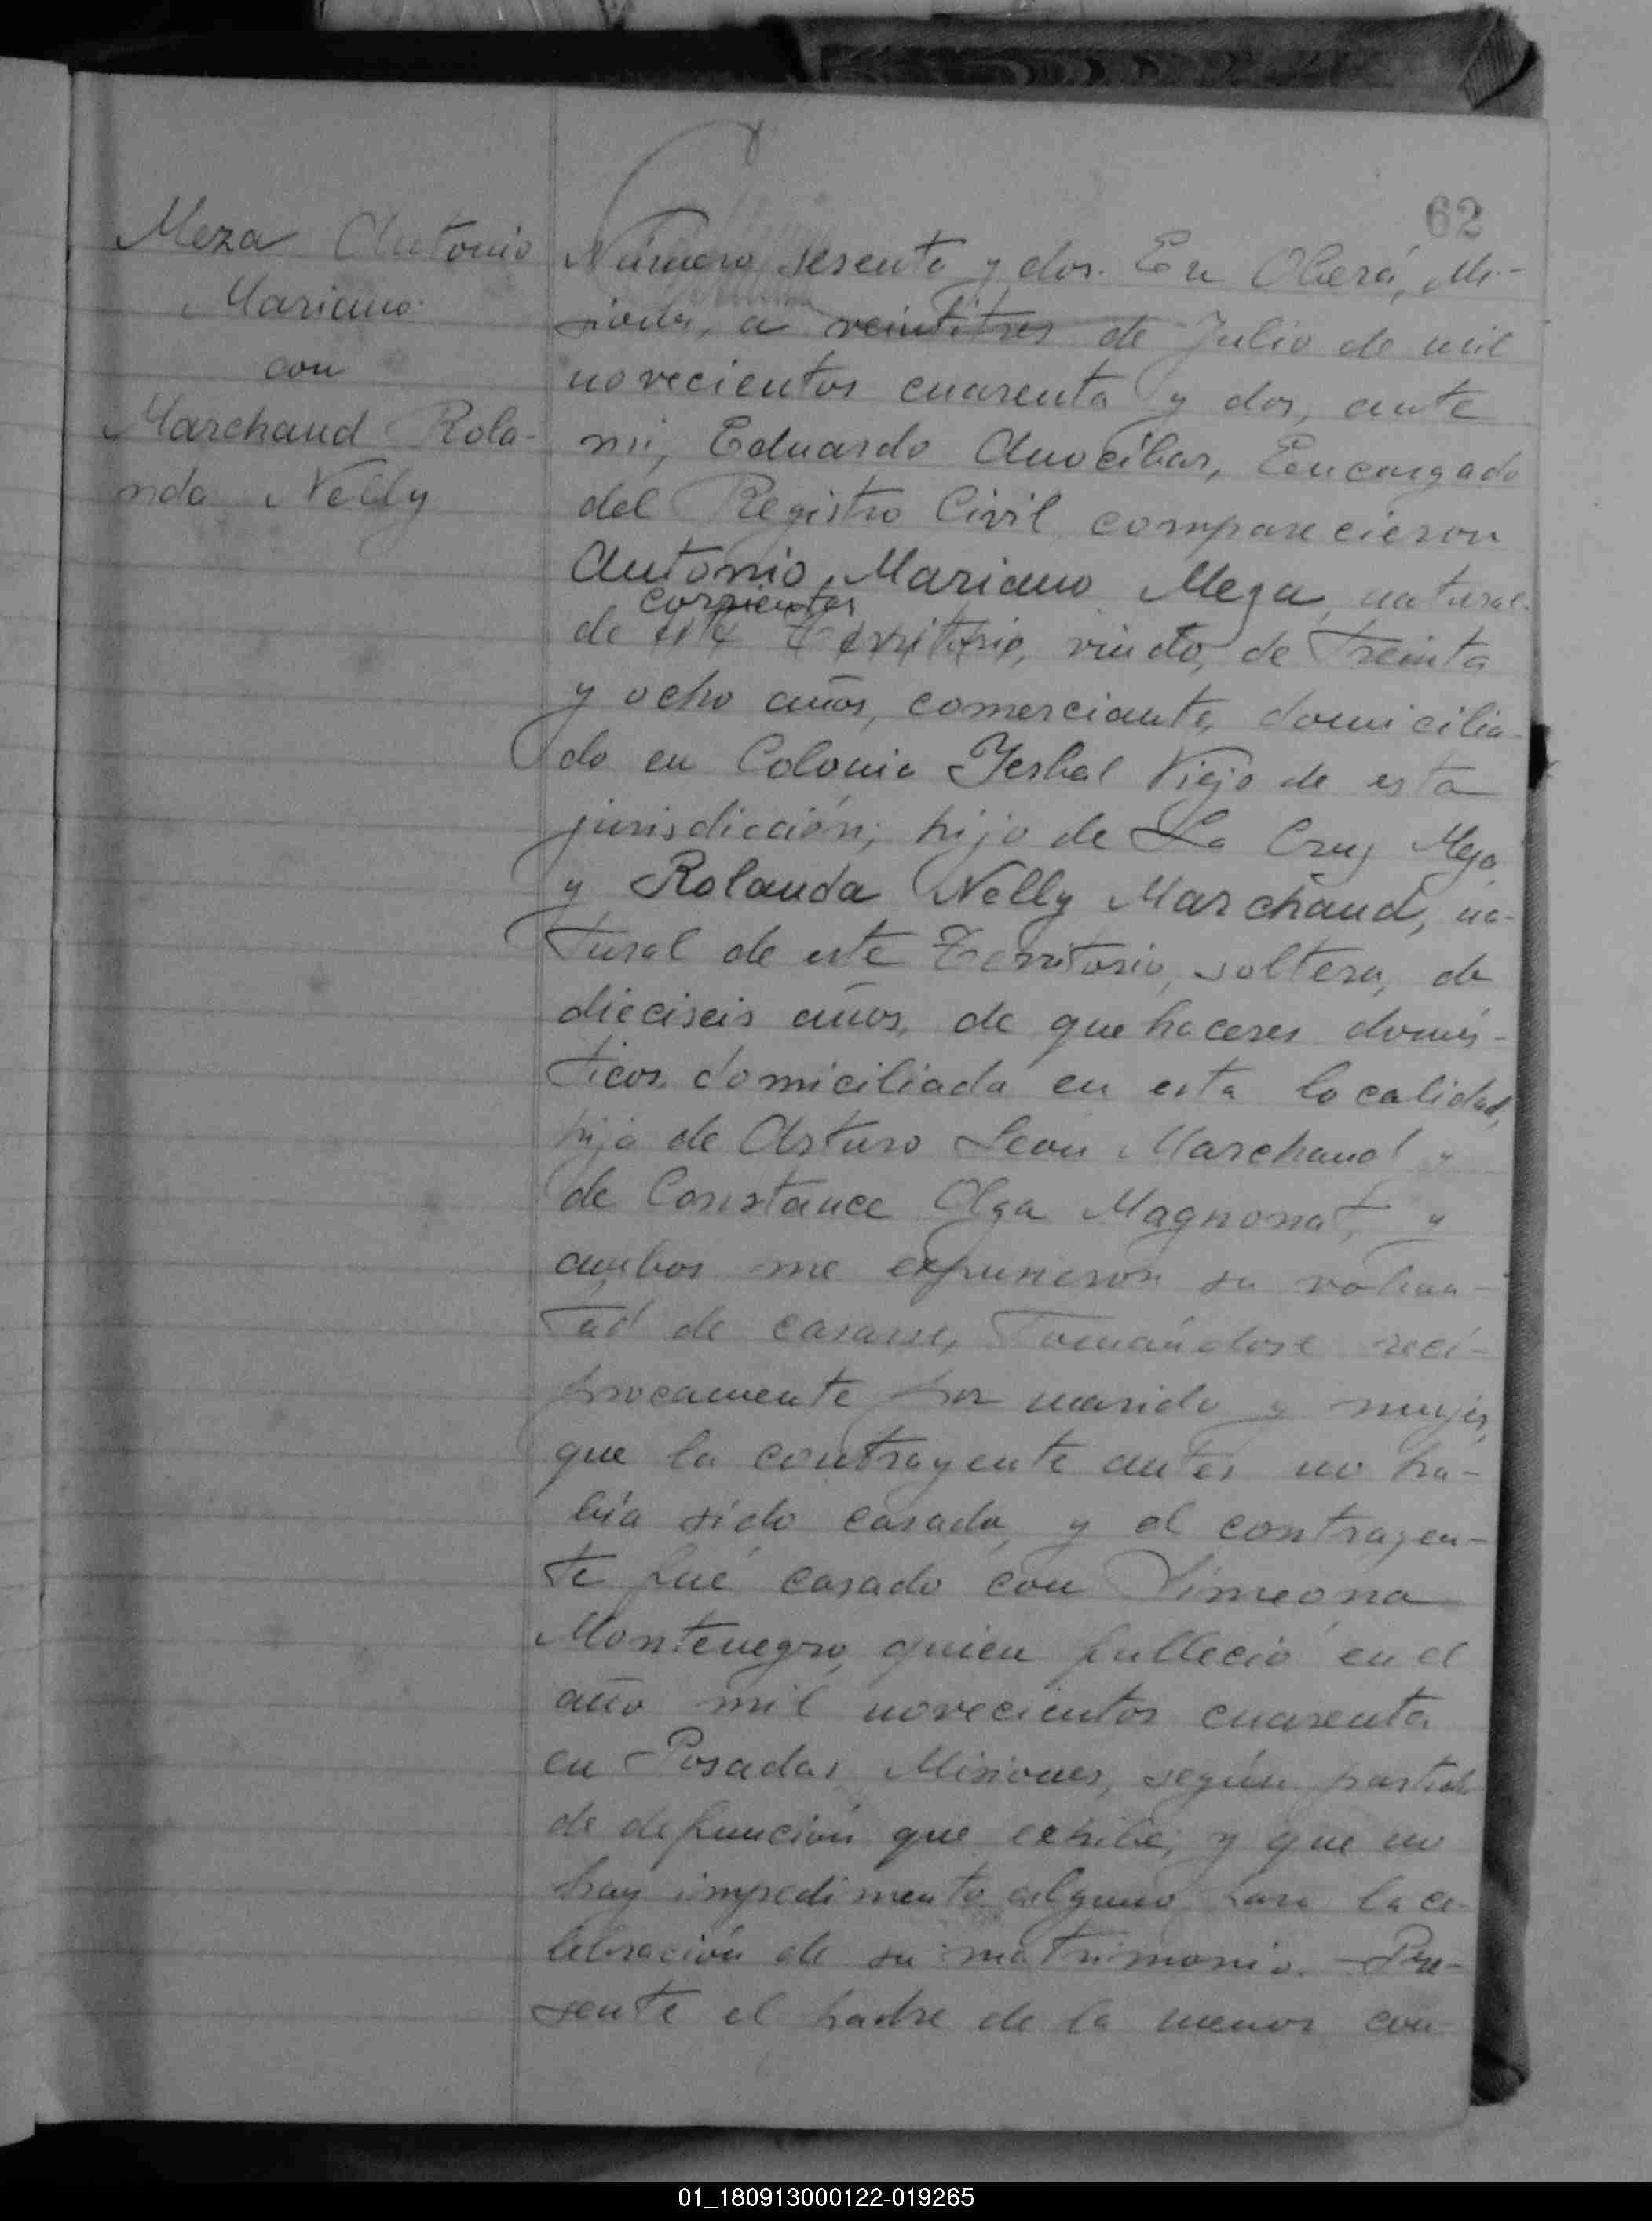 62
Meza Antonio
Mariano
con
Marchand Rola-
nda Nelly
Número sesenta y dos. En Oberá, Mi-
siones, a veintitres de Julio de mil
novecientos cuarenta y dos, ante
mi, Eduardo Anocíbar, Encargado
del Registro Civil comparecieron
Antonio Mariano Meza, natural
corrientes
de este Territorio, viudo, de treinta
y ocho años, comerciante, domicilia-
do en Colonia Yerbal Viejo de esta
jurisdicción; hijo de La Cruz Meza
y Rolanda Nelly Marchand, na-
tural de este Territorio, soltera, de
dieciseis años, de quehaceres domés-
ticos, domiciliada en esta localidad,
hija de Arturo Leon Marchand y
de Constance Olga Magnonat, y
ambos me expusieron su volun-
tad de casarse, tomándose recí-
procamente por marido y mujer,
que la contrayente antes no ha-
bía sido casada, y el contrayen-
te fué casado con Simeona
Montenegro, quien falleció en el
año mil novecientos cuarenta
en Posadas Misiones, según partida
de defunción que exhibe; y que no
hay impedimento alguno para la ce-
lebración de su matrimonio. Pre-
sente el padre de la menor con
01_180913000122-019265